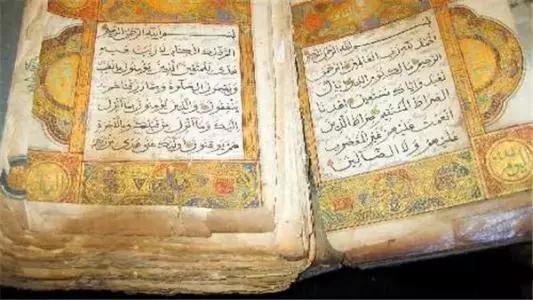 بسم الله الرحمن الرحيم
الحمد لله رب العالمين الرحمن
الرحيم مالك يوم الدين اياك
نعبد واياك نستعين اهدنا
الصراط المستقيم صراط الذين
انعمت عليهم غير المغضوب
عليهم ولا الضالين
بسم الله الرحمن الرحيم
الم ذلك الكتاب لا ريب فيه
هدى للمتقين الذين يؤمنون بالغيب
ويقيمون الصلوة ومما رزقناهم
ينفقون والذين يؤمنون بما انزل
اليك وما انزل من قبلك وبالاخرة
هم يوقنون اولئك على هدى من